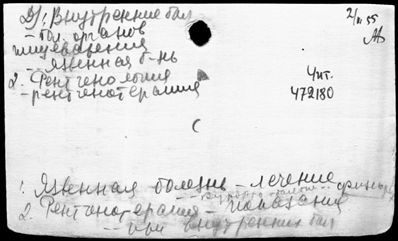 2/1. Внутренние бол.
– бол. органов
пищеварения
– язвенная б-нь
2. Рентгенология
– рентгенотерапия
2/XI 55
Чит.
472180
1. Язвенная болезнь – лечение
2. Рентгенотерапия – показания
– при внутренних бол